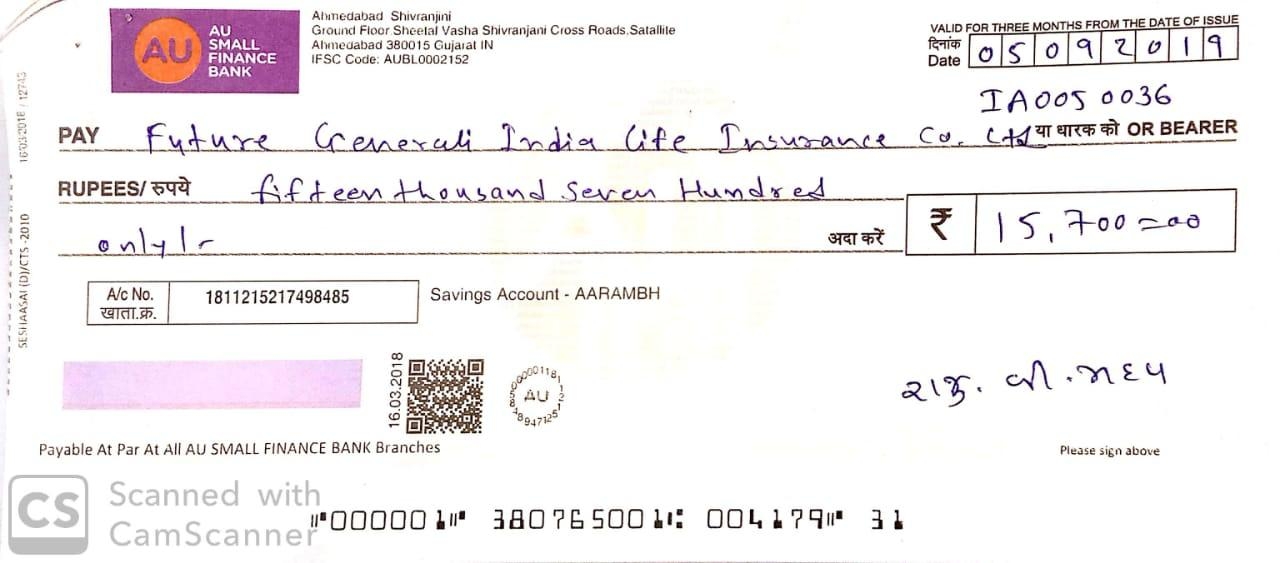 AU
AU
SMALL
FINANCE
BANK
Ahmedabad Shivranjini
Ground Floor Sheetal Vasha Shivranjani Cross Roads,Satallite
Ahmedabad 380015 Gujarat IN
IFSC Code: AUBL0002152
VALID FOR THREE MONTHS FROM THE DATE OF ISSUE
दिनांक
Date 05092019
IA0050036
PAY Future Generali India Life Insurance Co. Ltd या धारक को OR BEARER
RUPEES/ रुपये fifteen thousand Seven Hundred
only/- अदा करें ₹ 15,700=00
A/c No. 1811215217498485
खाता.क्र.
Savings Account - AARAMBH
SESHAASAI (D)/CTS -2010 16/03/2018 / 12743
16.03.2018
AU
રાજુ. વી.
Payable At Par At All AU SMALL FINANCE BANK Branches
Please sign above
CS Scanned with
CamScanner
⑈000001⑈ 380765001⑆ 004179⑈ 31